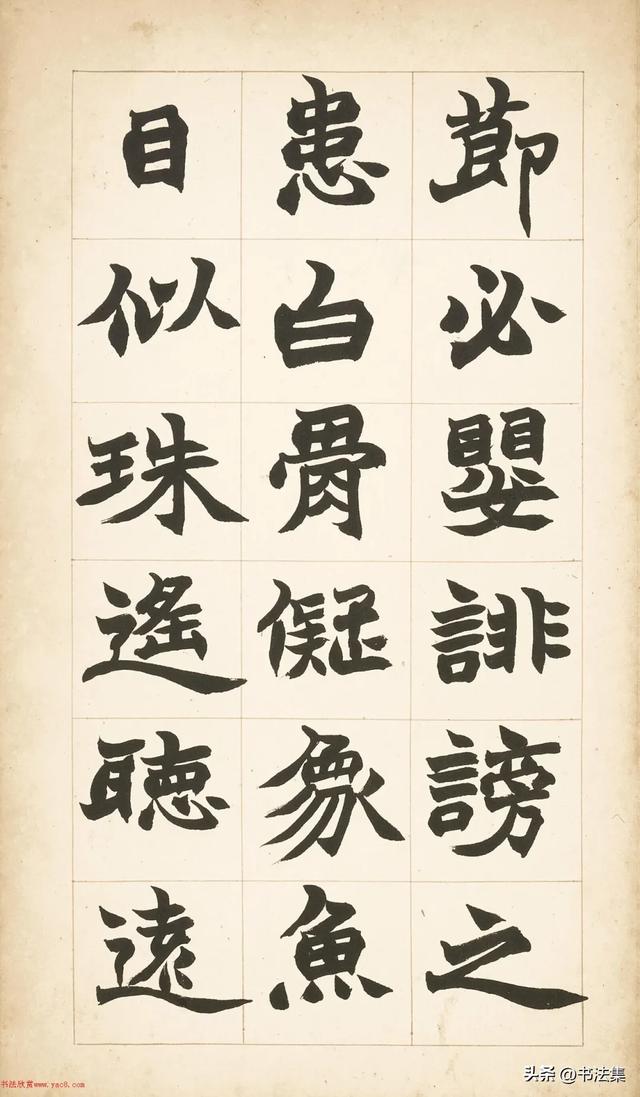 節必嬰誹謗之
患白骨儗象魚
目似珠遙聽遠
书法欣赏www.yac8.com
头条 @书法集